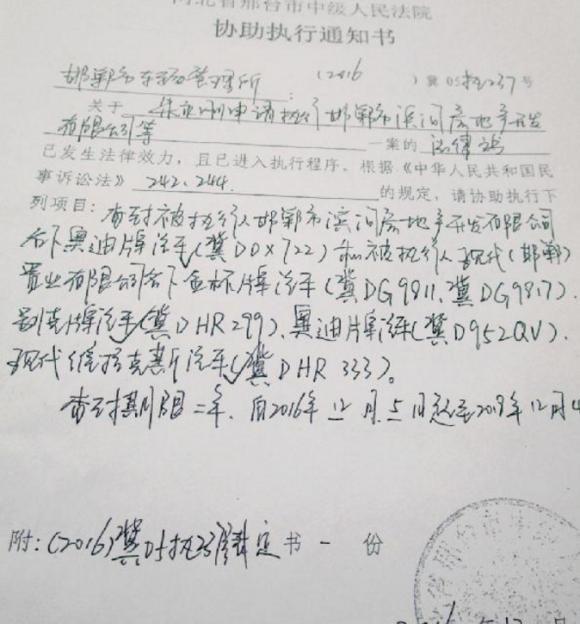 河北省邢台市中级人民法院
协助执行通知书
邯郸市车辆管理所: (2016)冀05执237号
关于 申请执行邯郸市滨河房地产开发
有限公司等 一案的 法律文书
已发生法律效力，且已进入执行程序。根据《中华人民共和国民
事诉讼法》 242、244. 的规定，请协助执行下
列项目：查封被执行人邯郸市滨河房地产开发有限公司
名下奥迪牌汽车(冀D0X722)和被执行人现代(邯郸)
置业有限公司名下金杯牌汽车(冀DG9811、冀DG9817)、
别克牌汽车(冀DHR299)、奥迪牌汽车(冀D952QV)、
现代维拉克斯汽车(冀DHR333)。
查封期限二年，自2016年12月5日起至2018年12月4
附：(2016)冀05执237号裁定书一份